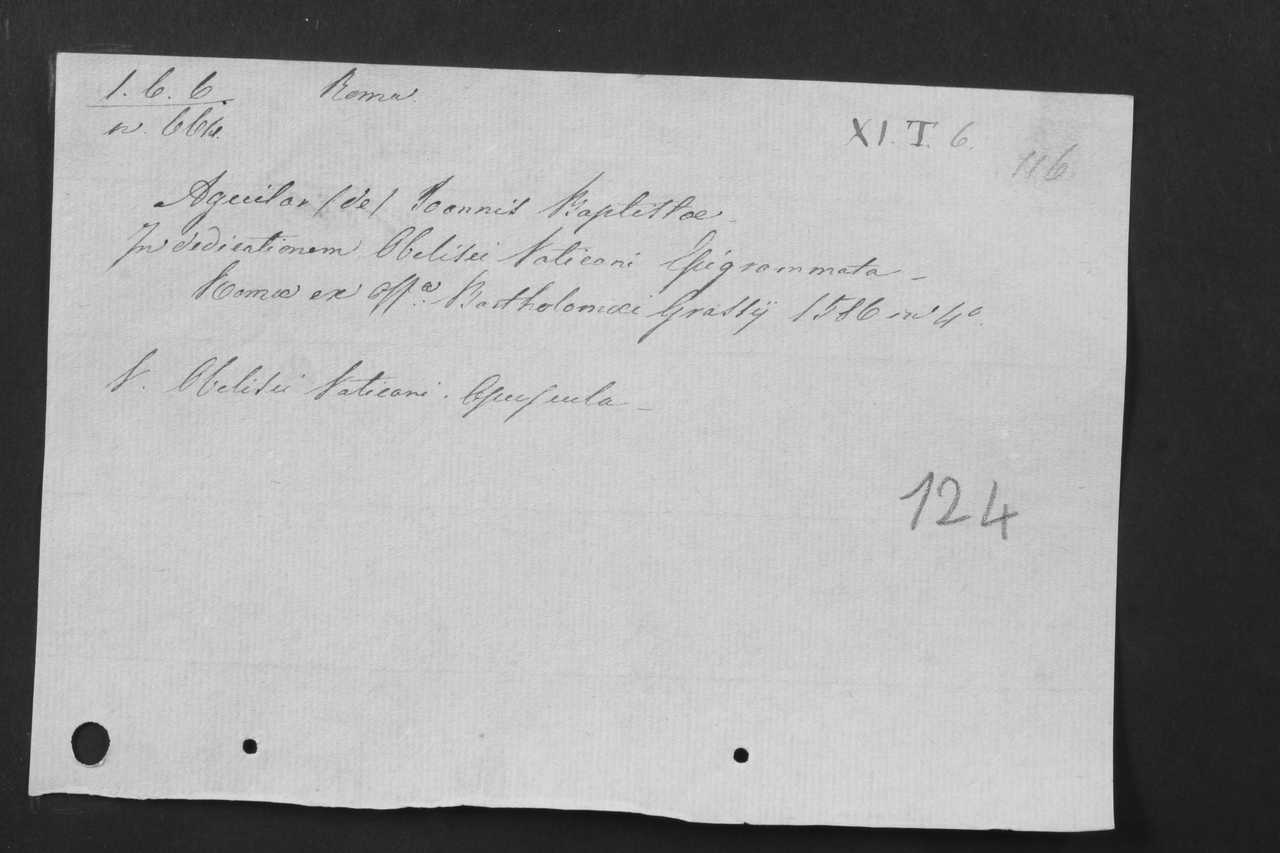 1. 6. 6. Roma.
n. 664.
XI. T. 6.
116
Aguilar (de) Joannis Baptistae –
In dedicationem Obelisci Vaticani Epigrammata –
Romae ex offa. Bartholomaei Grassij 1586 in 4o.
V. Obelisci Vaticani. Opuscula –
124